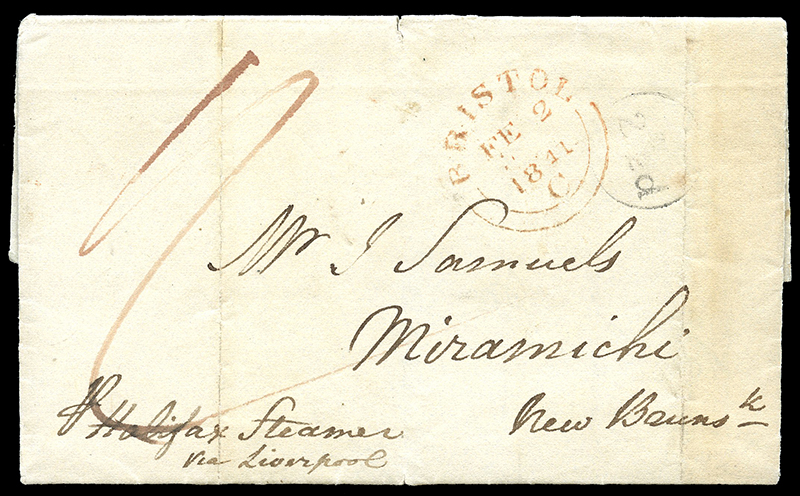 BRISTOL
FE 2
1841
C
Mr J Samuels
Miramichi
New Brunsk
Halifax Steamer
via Liverpool